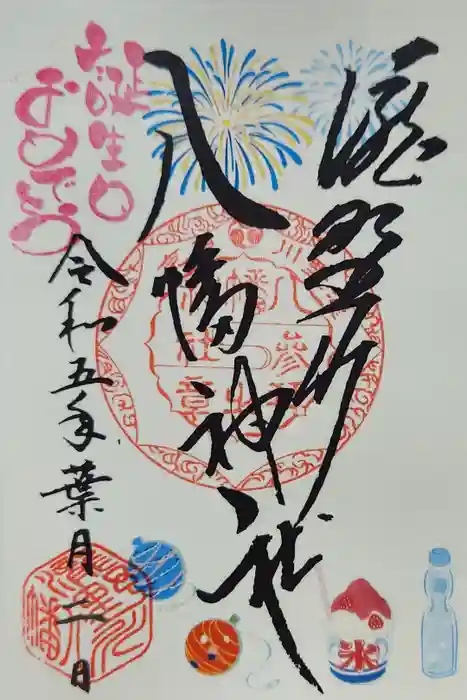 瀧野川
八幡神社
お誕生日
おめでとう
令和五年葉月二日
氷